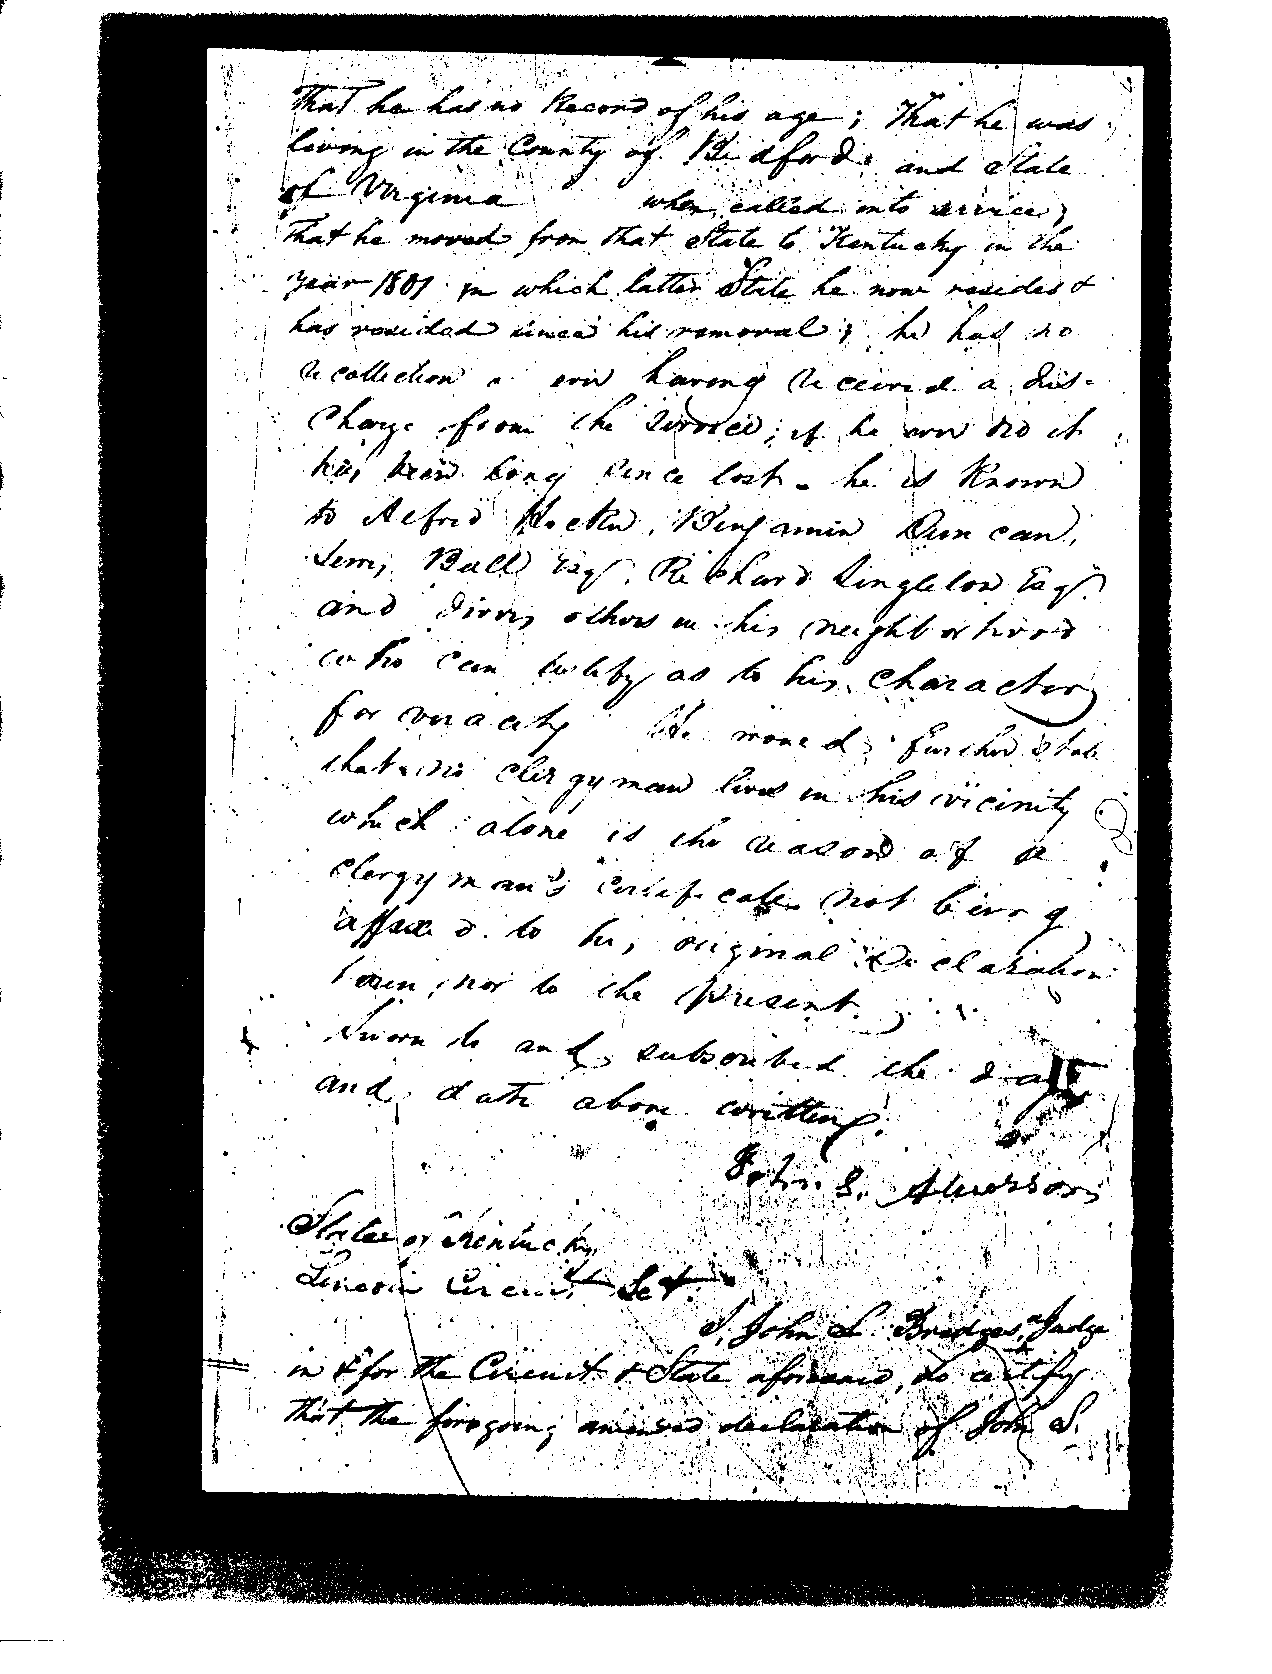 That he has no Record of his age; That he was
living in the County of Bedford and State
of Virginia when called into service;
That he moved from that State to Kentucky in the
year 1801 in which latter State he now resides &
has resided since his removal; he has no
recollection ever having received a dis-
charge from the service; if he ever did it
has been long since lost - he is Known
to Alfred Hocker, Benjamin Duncan,
Bull Esqr. Richard Singleton Esqr.
and divers others in his neighborhood
who can testify as to his character
for veracity He would further state
that no clergyman lives in his vicinity
which alone is the reason of a
clergyman's certificate not being
affixed to his original Declaration
herein, nor to the present.
Sworn to and subscribed the day
and date above written.
John S. Alverson
State of Kentucky
Lincoln Circuit Sct.
I, John L. Bridges, a Judge
in & for the Circuit & State aforesaid, do certify
that the foregoing amended declaration of John S.